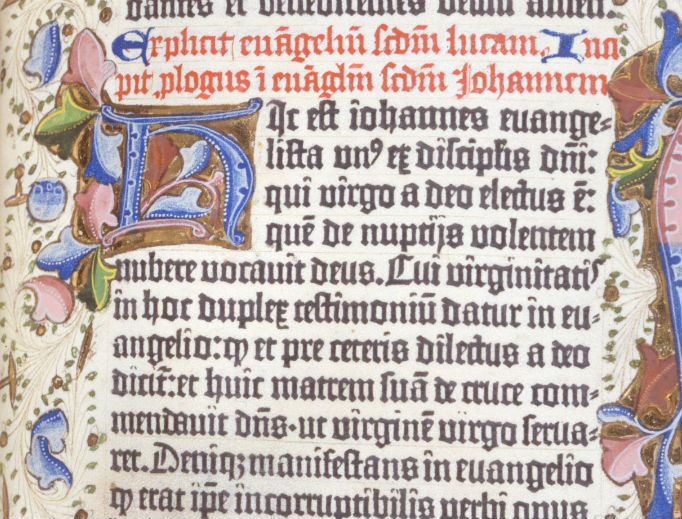 dantes et benedicentes deum amen.
Explicit euāgeliū scdm̄ lucam. Inci
pit ꝓlogus ī euāgliū scdm̄ Johannem
Hic est iohannes euange⸗
lista unꝰ ex discipl̄is dnī:
qui virgo a deo electus ē:
quē de nuptijs volentem
nubere vocauit deus. Cui virginitatis
in hoc duplex testimoniū datur in eu⸗
angelio: ꝙ et pre ceteris dilectus a deo
dicit̄: et huic matrem suā de cruce com⸗
mendauit dn̄s. ut virginē virgo serua⸗
ret. Deniqꝫ manifestans in euangelio
ꝙ erat ip̄e incorruptibilis verbi opus